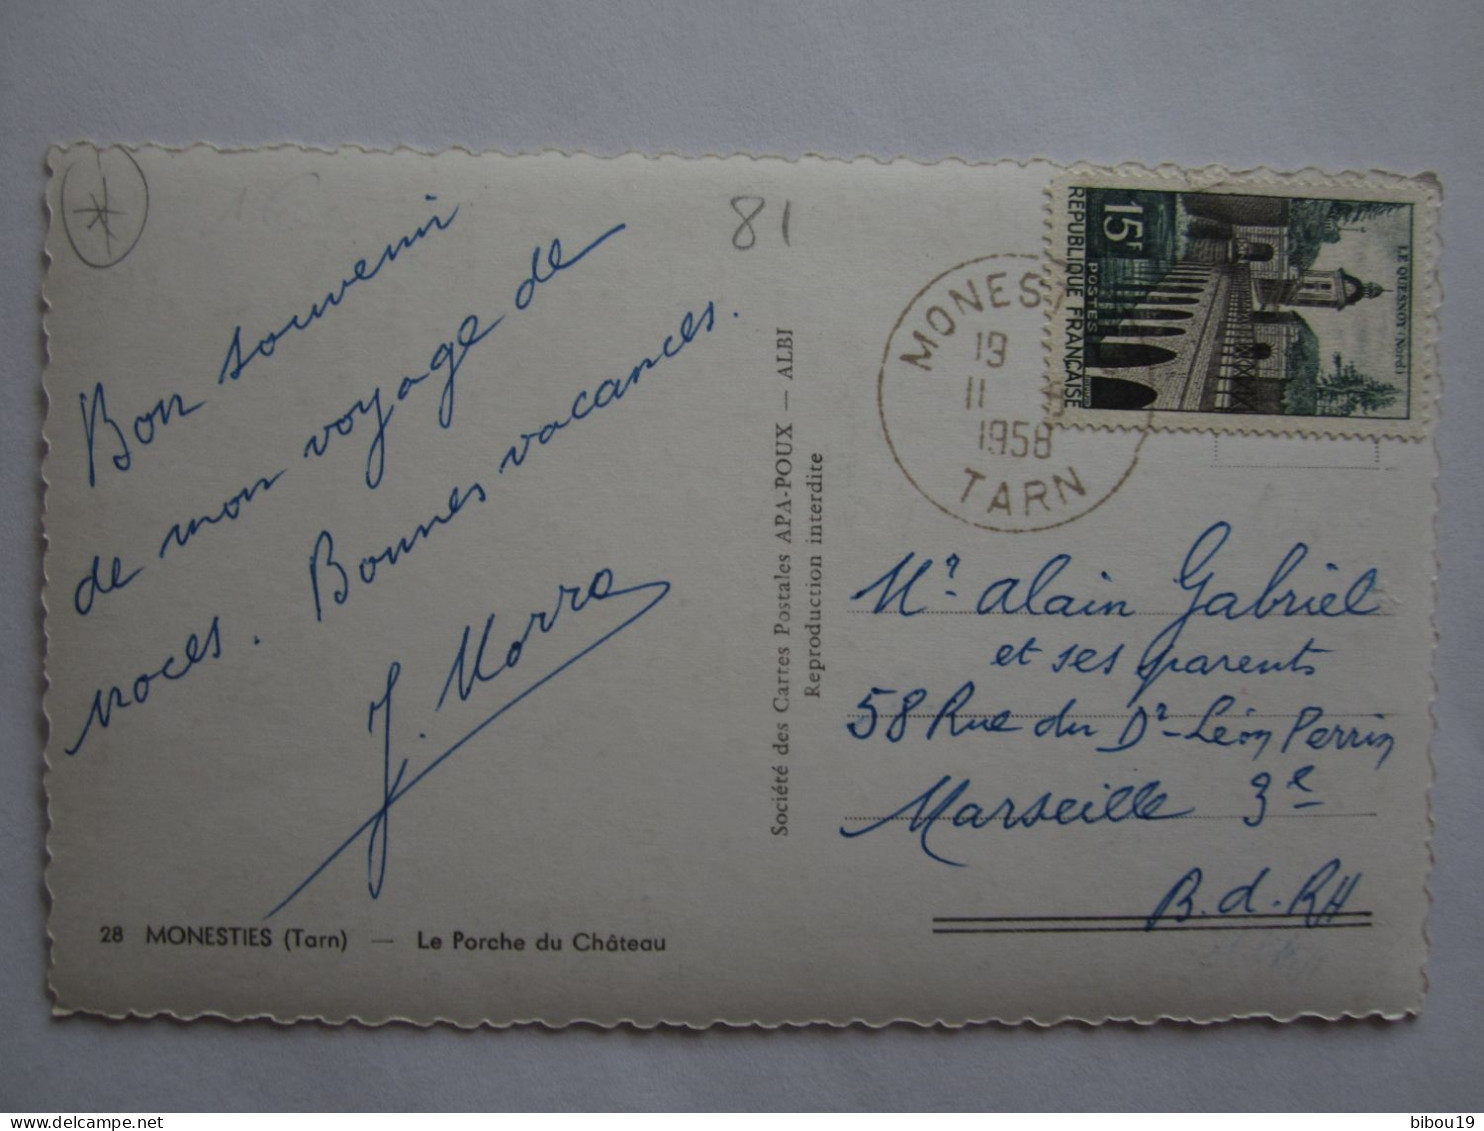 Bon souvenir
de mon voyage de
noces. Bonnes vacances.
J. Morra
28 MONESTIES (Tarn) — Le Porche du Château
81
Société des Cartes Postales APA-POUX — ALBI
Reproduction interdite
MONEST
19
11
1958
TARN
15F
REPUBLIQUE FRANÇAISE
POSTES
LE QUESNOY (Nord)
Mr. Alain Gabriel
et ses parents
58 Rue du Dr Léon Perrin
Marseille 3e
B.d.RH
delcampe.net
bibou19